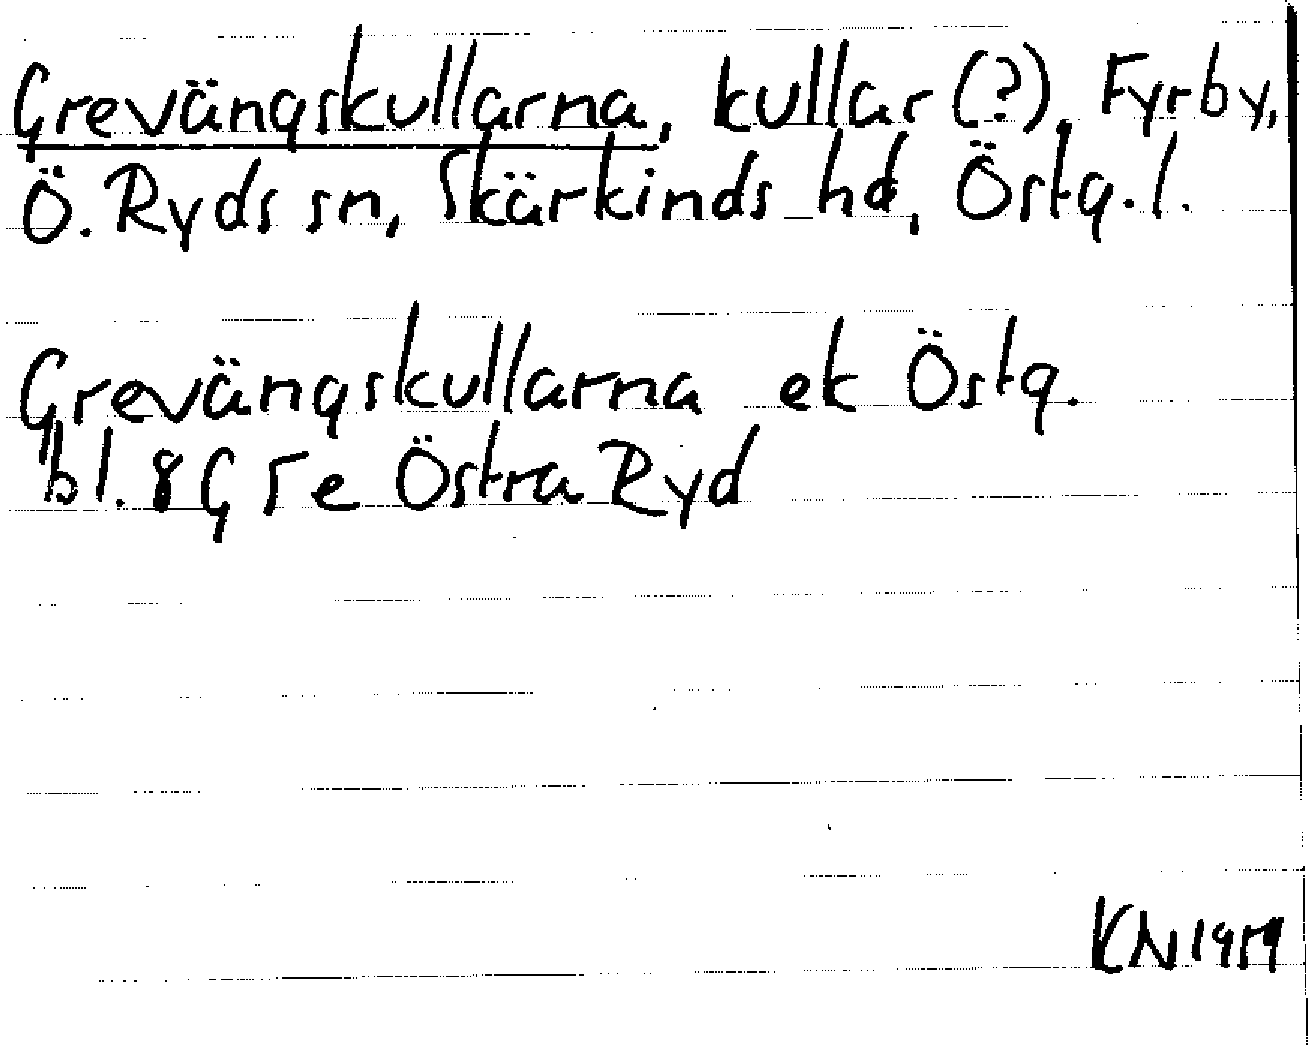 Grevängskullarna, kullar (?), Fyrby,
Ö. Ryds sn, Skärkinds hd, Östg. l.
Grevängskullarna ek Östg.
bl. 8 G 5 e Östra Ryd
KN 1959